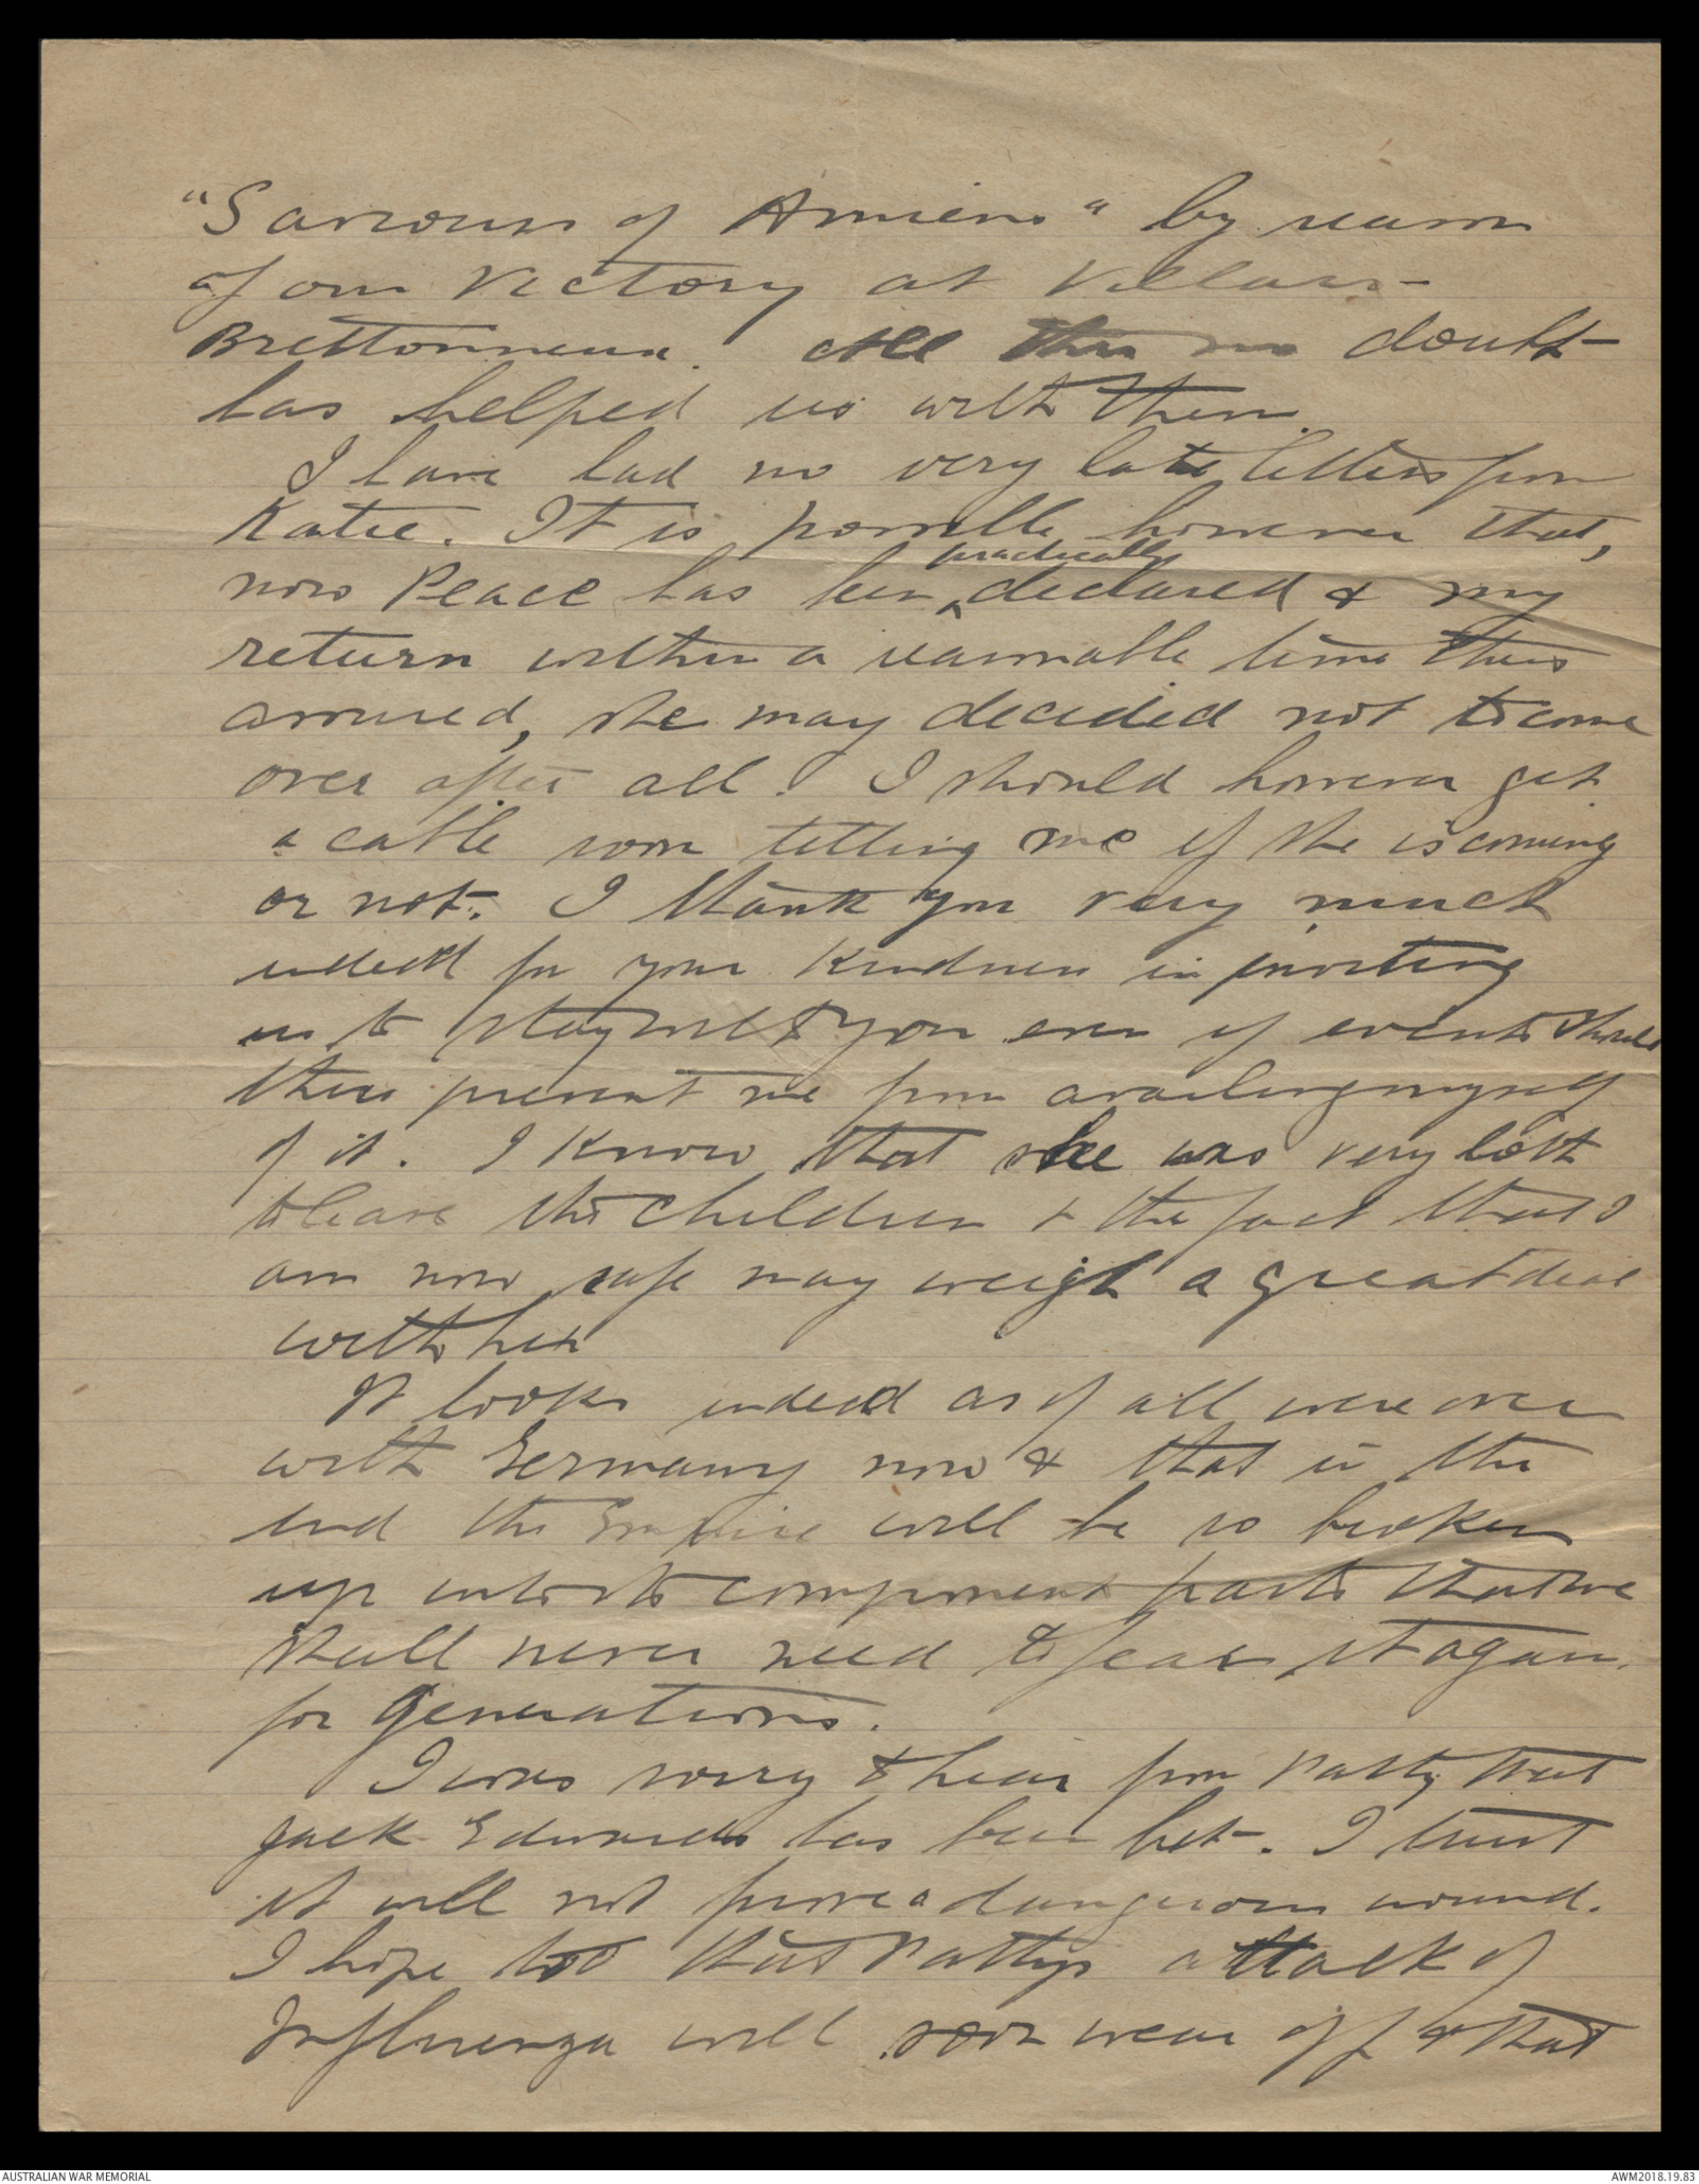 "Saviours of Amiens" by reason
of our Victory at Villers-
Brettonneux. All this no doubt
has helped us with them.
I have had no very late letters from
Katie. It is possible however that,
now Peace has been ^practically declared & my
return within a reasonable time thus
assured, she may decided not to come
over after all. I should however get
a cable soon telling me if she is coming
or not. I thank you very much
indeed for your kindness in inviting
us to stay with you even if events should
thus prevent me from availing myself
of it. I know that she was very loth
to leave the children & the fact that I
am now safe may weigh a great deal
with her
It looks indeed as if all were over
with Germany now & that in the
end the Empire will be so broken
up into its component parts that we
shall never need to fear it again
for generations.
I was sorry to hear from Patty that
Jack Edwards has been hit. I trust
it will not prove a dangerous wound.
I hope too that Pattys attack of
Influenza will soon wear off & that
AUSTRALIAN WAR MEMORIAL
AWM2018.19.83